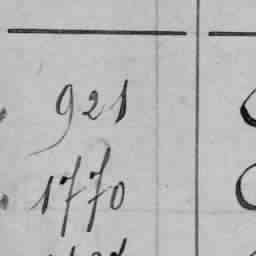 921
1770